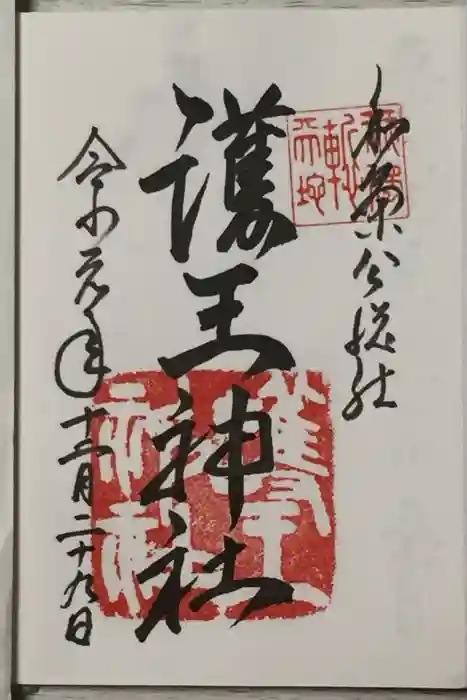 和気公総社
護王神社
令和元年十二月二十九日
護王神社